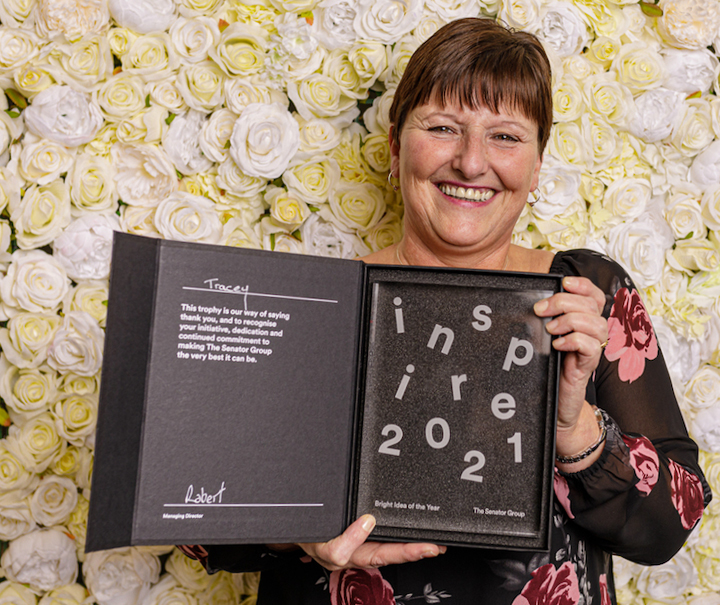 Tracey
This trophy is our way of saying
thank you, and to recognise
your initiative, dedication and
continued commitment to
making The Senator Group
the very best it can be.
Robert
Managing Director
inspire
2021
Bright Idea of the Year
The Senator Group